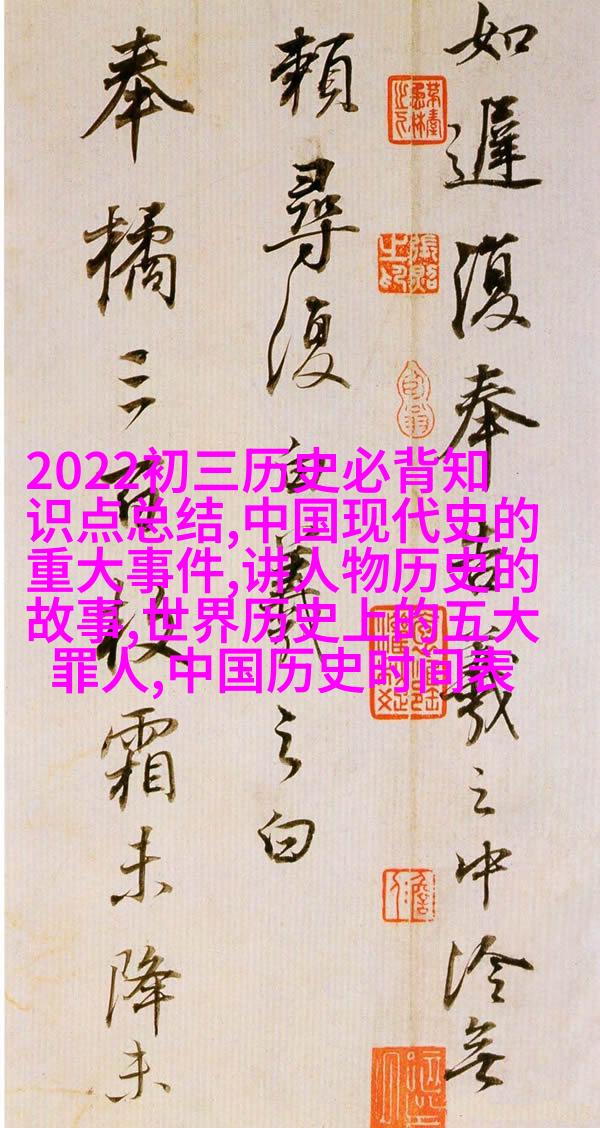 2022初三历史必背知
识点总结,中国现代史的
重大事件,讲人物历史的
故事,世界历史上的五大
罪人,中国历史时间表
如遲復奉告羲之中冷無
賴尋復白羲之白
奉橘三百枚霜未降未